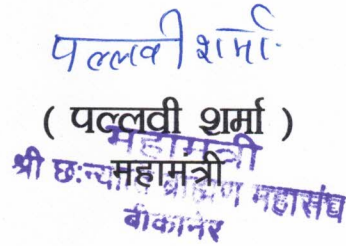 पल्लवी शर्मा
( पल्लवी शर्मा )
महामंत्री
महामंत्री
श्री छःन्याति ब्राह्मण महासंघ
बीकानेर